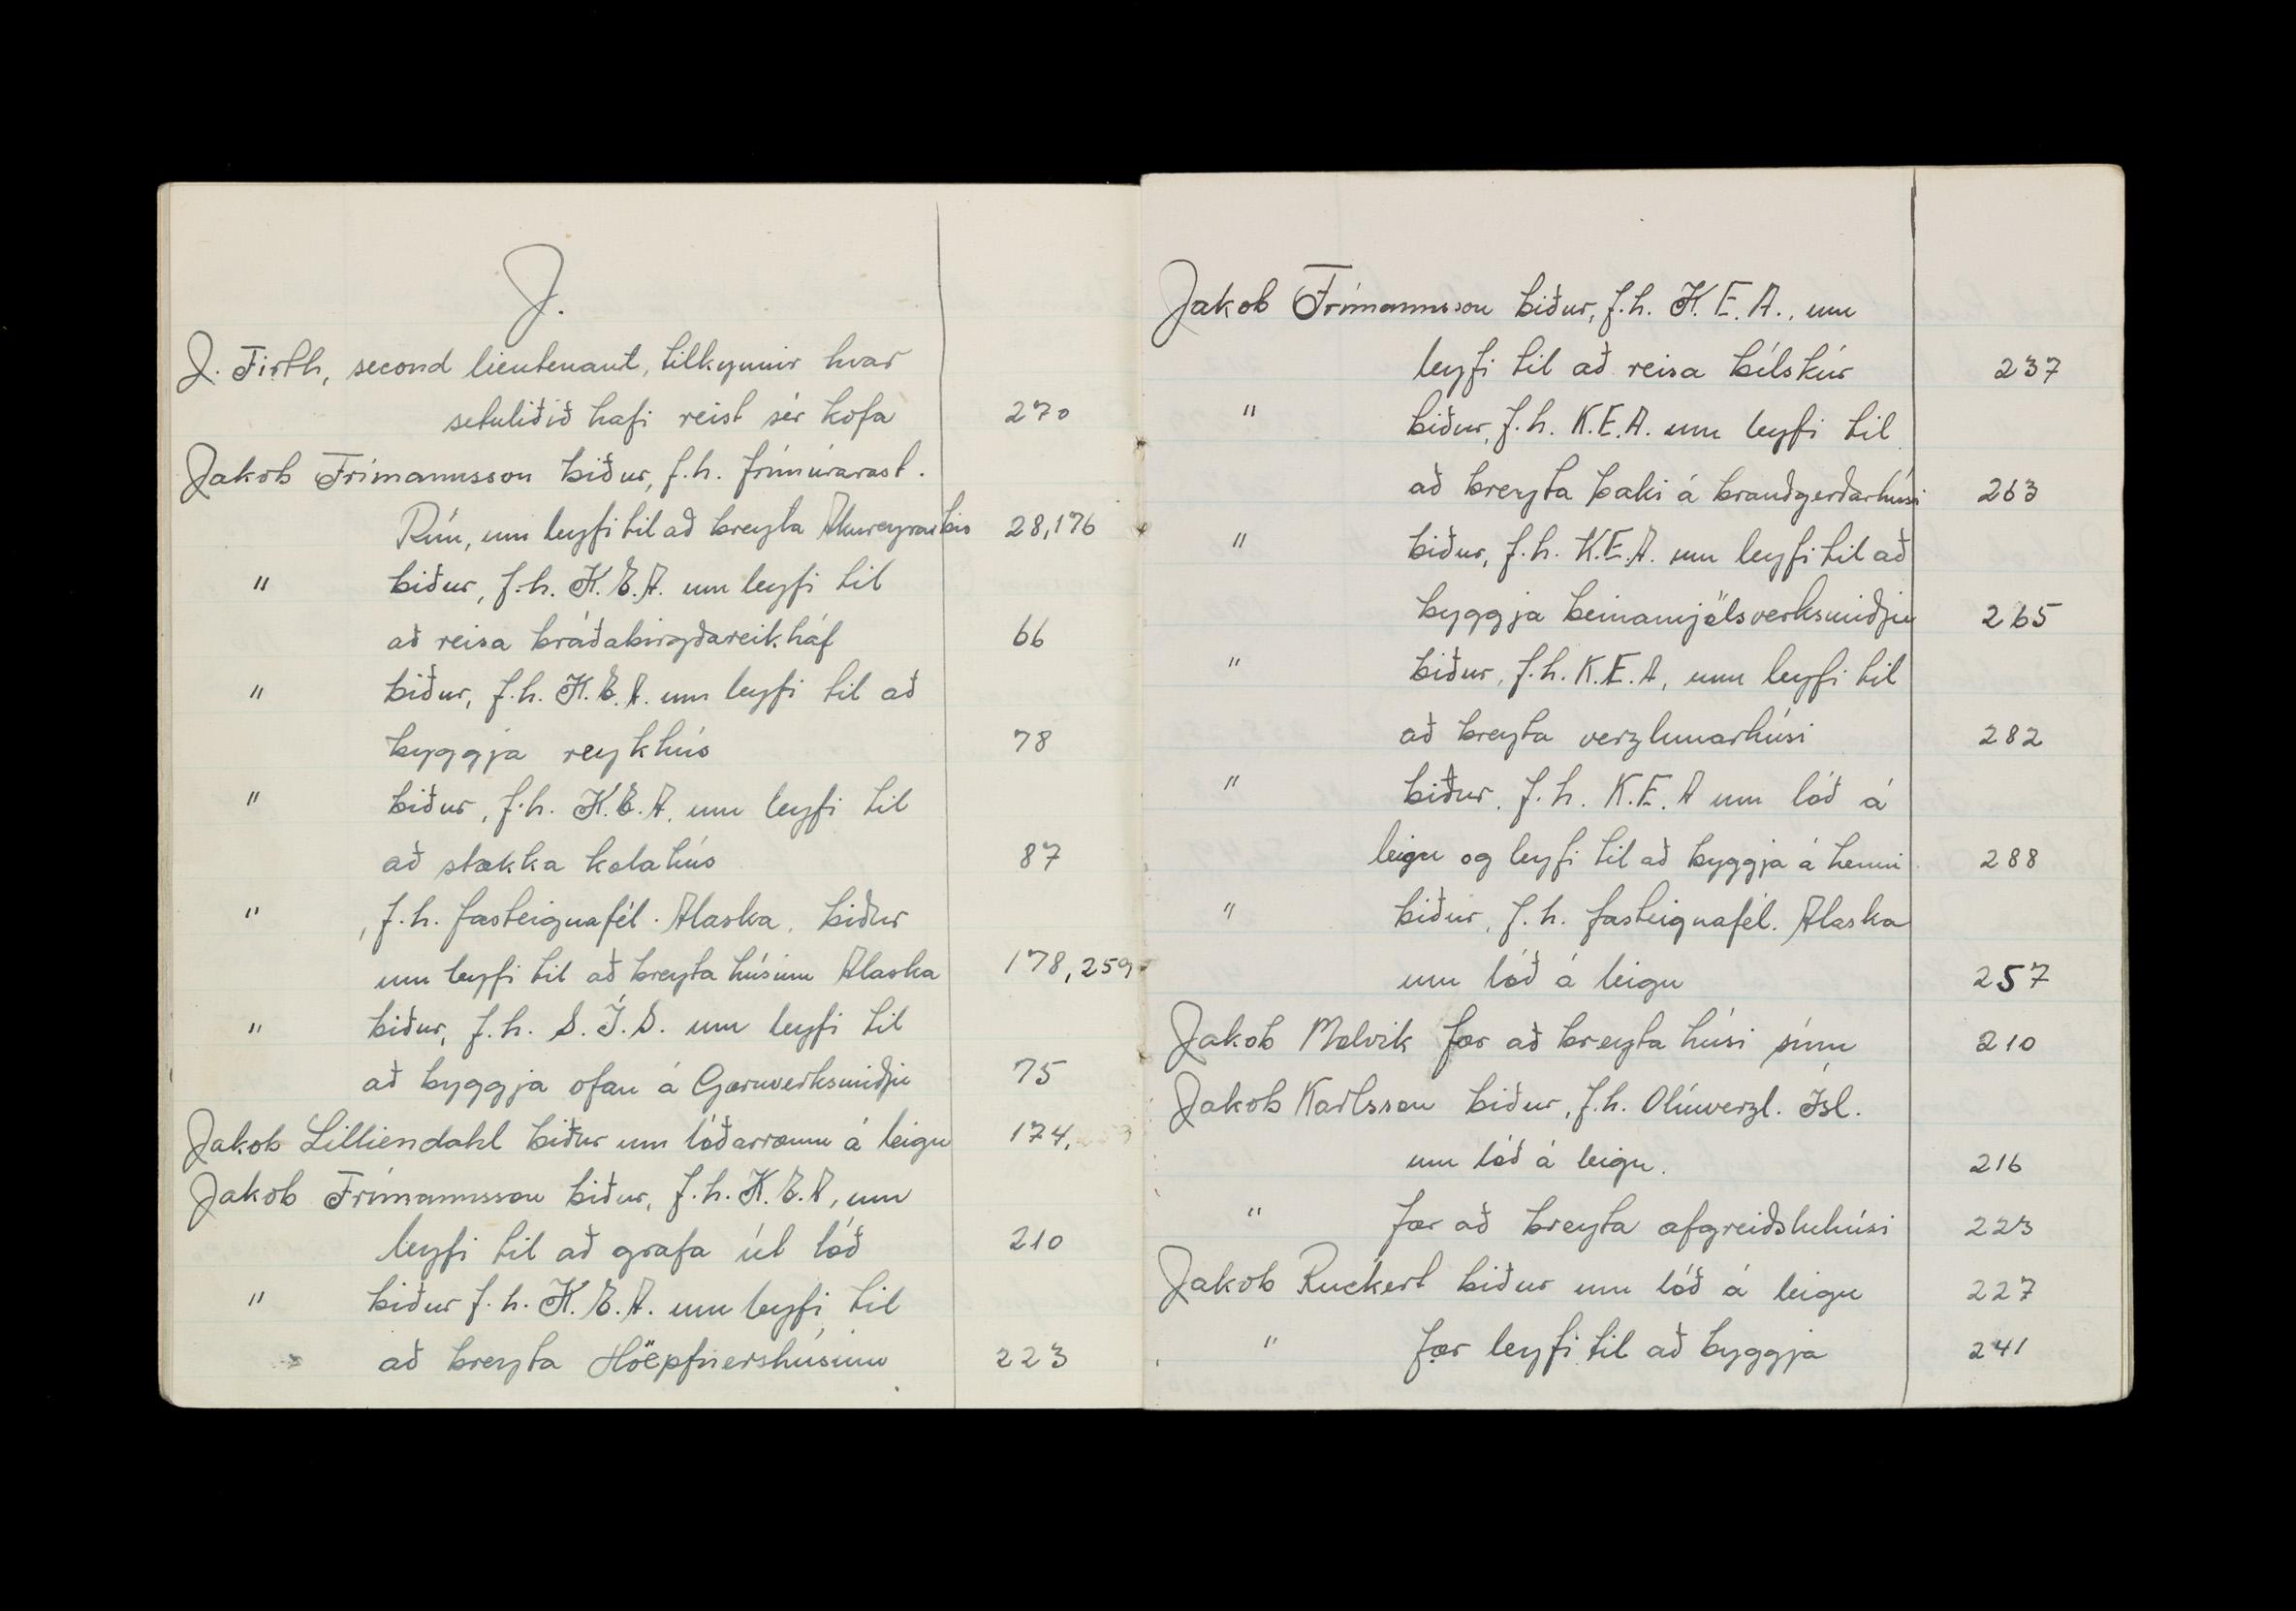 J.
J. Firth, second lieutenant, tilkynnir hvar
setuliðið hafi reist sér kofa 270
Jakob Frímannsson biður, f.h. frímúrarast.
Rún, um leyfi til að breyta Akureyrarbio 28,176
" biður, f.h. K.E.A. um leyfi til
að reisa bráðabirgðareik.háf 66
" biður, f.h. K.E.A. um leyfi til að
byggja reykhús 78
" biður, f.h. K.E.A. um leyfi til
að stækka kolahús 87
" , f.h. fasteignafél. Alaska, biður
um leyfi til að breyta húsinu Alaska 178,259
" biður, f.h. S.Í.S. um leyfi til
að byggja ofan á Gæruverksmiðju 75
Jakob Lilliendahl biður um lóðarræmu á leigu 174,
Jakob Frímannsson biður, f.h. K.E.A, um
leyfi til að grafa út lóð 210
" biður f.h. K.E.A. um leyfi til
að breyta Höepfnershúsinu 223
Jakob Frímannsson biður, f.h. K.E.A., um
leyfi til að reisa bílskúr 237
" biður, f.h. K.E.A. um leyfi til
að breyta þaki á brauðgerðarhúsi 263
" biður, f.h. K.E.A. um leyfi til að
byggja beinamjölsverksmiðju 265
" biður, f.h. K.E.A, um leyfi til
að breyta verzlunarhúsi 282
" biður, f.h. K.E.A um lóð á
leigu og leyfi til að byggja á henni 288
" biður, f.h. fasteignafél. Alaska
um lóð á leigu 257
Jakob Melvik fær að breyta húsi sínu 210
Jakob Karlsson biður, f.h. Olíuverzl. Ísl.
um lóð á leigu. 216
" fær að breyta afgreiðsluhúsi 223
Jakob Ruckert biður um lóð á leigu 227
" fær leyfi til að byggja 241